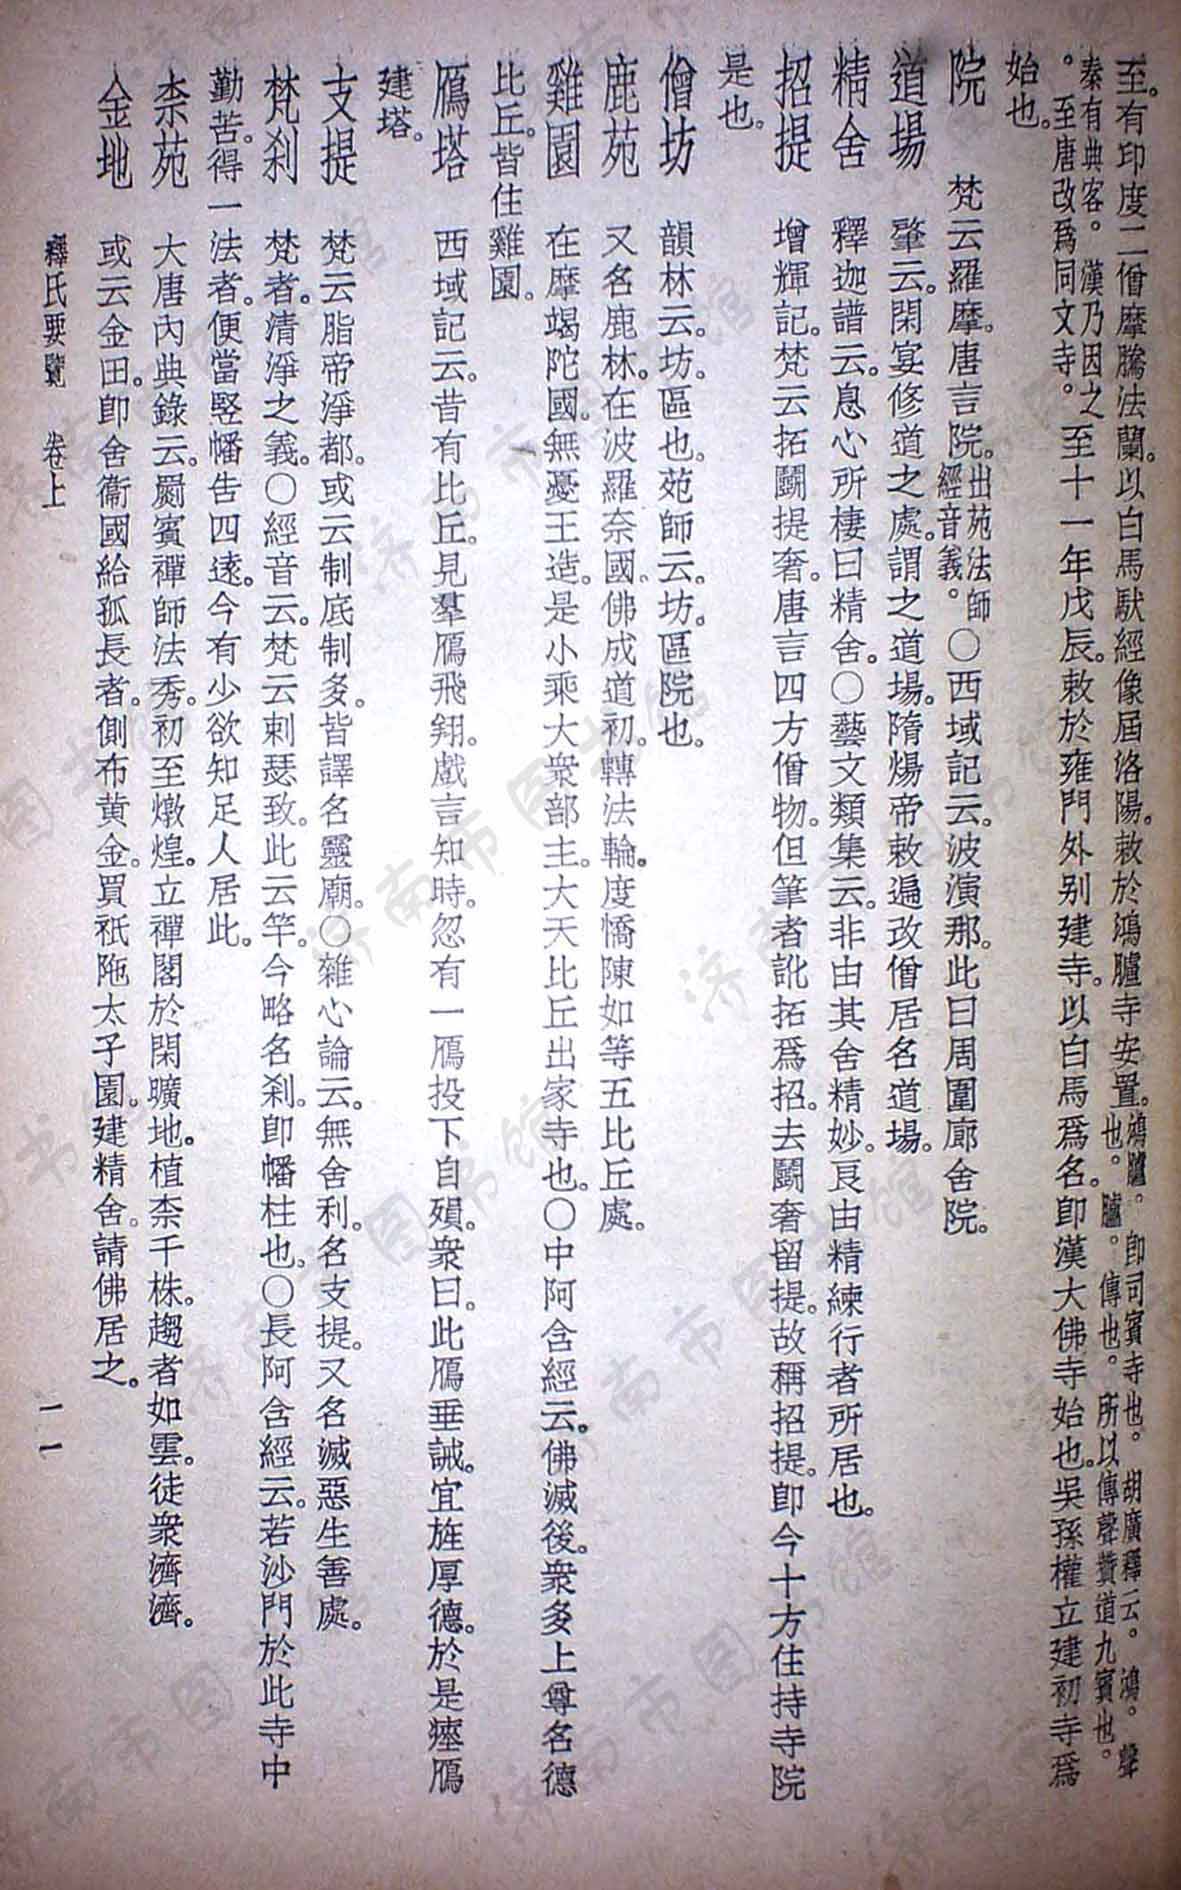 至。有印度二僧摩騰法蘭。以白馬馱經像屆洛陽。敕於鴻臚寺安置。鴻臚。卽司賓寺也。胡廣釋云。鴻。聲也。臚。傳也。所以傳聲贊道九賓也。
秦有典客。漢乃因之。至唐改爲同文寺。至十一年戊辰。敕於雍門外别建寺。以白馬爲名。卽漢大佛寺始也。吳孫權立建初寺爲
始也。
院　梵云羅摩。唐言院。出苑法師經音義。〇西域記云。波演那。此曰周圍廊舍院。
道場　肇云。閑宴修道之處。謂之道場。隋煬帝敕遍改僧居名道場。
精舍　釋迦譜云。息心所棲曰精舍。〇藝文類集云。非由其舍精妙。良由精練行者所居也。
招提　增輝記。梵云拓鬬提奢。唐言四方僧物。但筆者訛拓爲招。去鬬奢留提。故稱招提。卽今十方住持寺院
是也。
僧坊　韻林云。坊。區也。苑師云。坊。區院也。
鹿苑　又名鹿林。在波羅奈國。佛成道初。轉法輪。度憍陳如等五比丘處。
雞園　在摩竭陀國。無憂王造。是小乘大衆部主。大天比丘出家寺也。〇中阿含經云。佛滅後。衆多上尊名德
比丘。皆住雞園。
鴈塔　西域記云。昔有比丘。見羣鴈飛翔。戲言知時。忽有一鴈投下自殞。衆曰。此鴈垂誡。宜旌厚德。於是瘞鴈
建塔。
支提　梵云脂帝淨都。或云制底制多。皆譯名靈廟。〇雜心論云。無舍利。名支提。又名滅惡生善處。
梵刹　梵者。清淨之義。〇經音云。梵云剌瑟致。此云竿。今略名刹。卽幡柱也。〇長阿含經云。若沙門於此寺中
勤苦。得一法者。便當竪幡告四遠。今有少欲知足人居此。
柰苑　大唐内典錄云。罽賓禪師法秀。初至燉煌。立禪閣於閑曠地。植柰千株。趨者如雲。徒衆濟濟。
金地　或云金田。卽舍衞國給孤長者。側布黄金。買祇陁太子園。建精舍。請佛居之。
釋氏要覽　卷上
一一